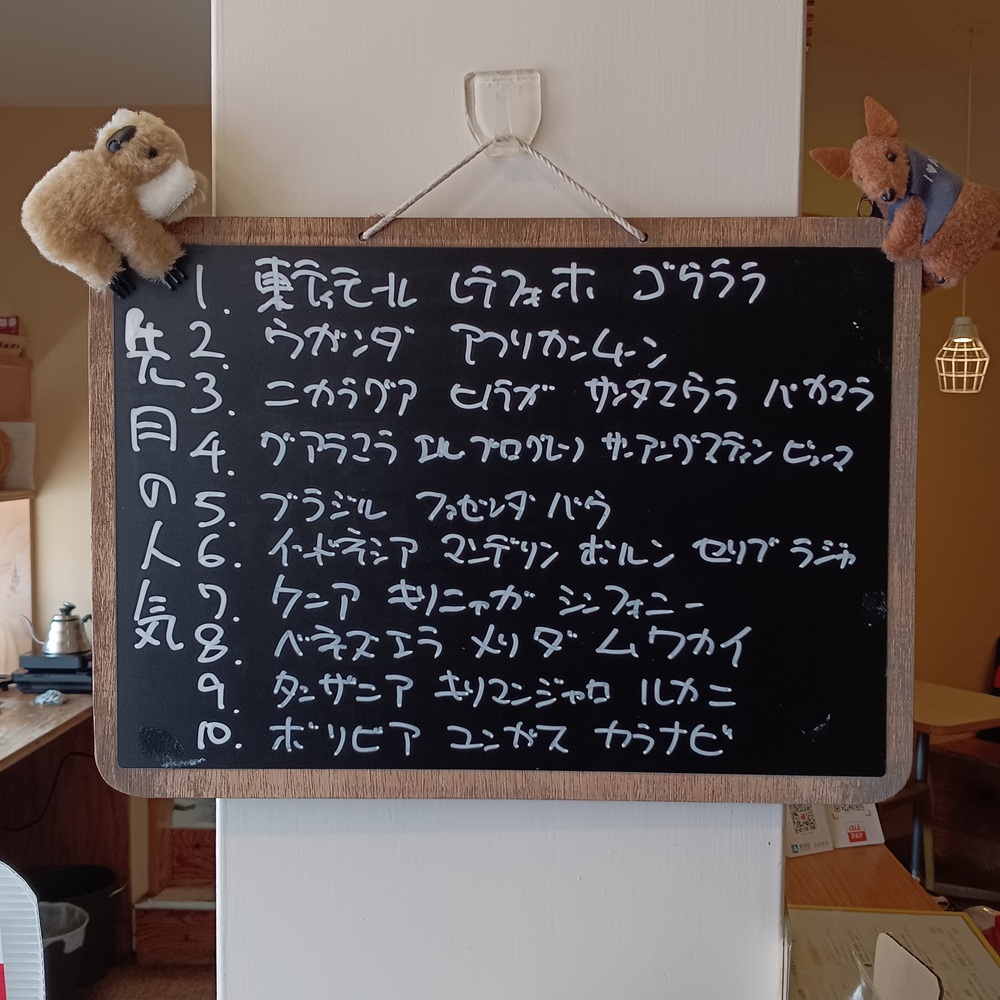 先月の人気
1. 東ティモール レテフォホ ゴウララ
2. ウガンダ アフリカンムーン
3. ニカラグア ヒノテガ サンタマウラ パカマラ
4. グアテマラ エル プログレソ サンアングスティン ピューマ
5. ブラジル ファゼンダ バウ
6. インドネシア マンデリン ボルン セリブ ラジャ
7. ケニア キリニャガ シンフォニー
8. ベネズエラ メリダ ムクカイ
9. タンザニア キリマンジャロ ルカニ
10. ボリビア ユンガス カラナビ
PAY